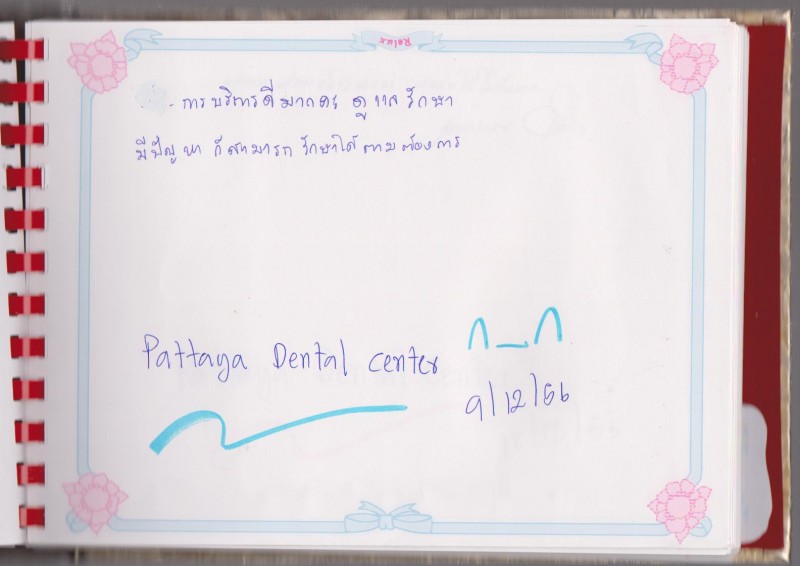 - การบริการดีมากคะ ดูแลรักษา
มีปัญหา ก็สามารถรักษาได้ตามต้องการ
Pattaya Dental Center
9/12/56